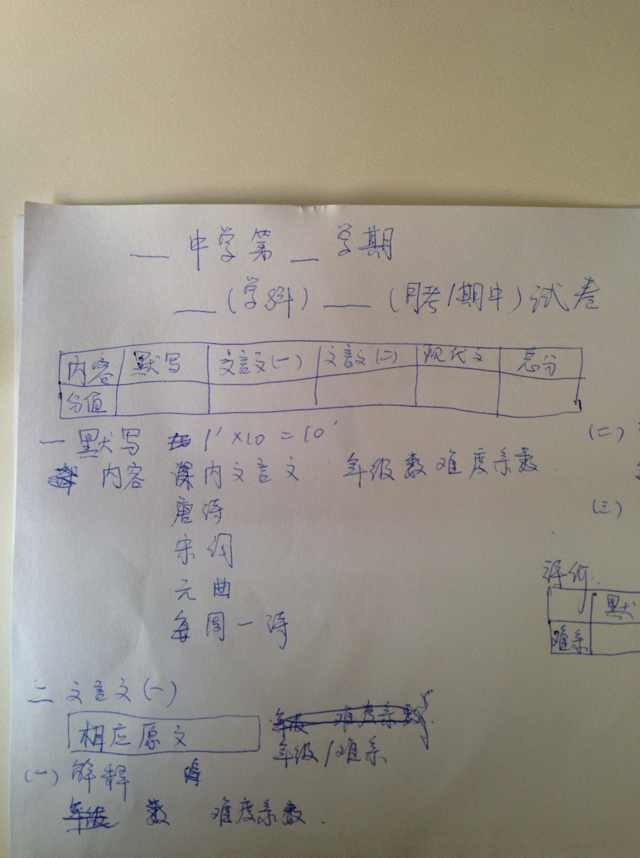 __ 中学第 __ 学期
__ (学科) __ (月考/期中) 试卷
内容 默写 文言文(一) 文言文(二) 现代文 总分
分值
一 默写 1'×10=10'
内容 课内文言文 年级 数 难度系数
唐诗
宋词
元曲
每周一诗
二 文言文(一)
相应原文
年级/难系
(一) 解释
数 难度系数.
(二)
(三)
评价.
默
难系